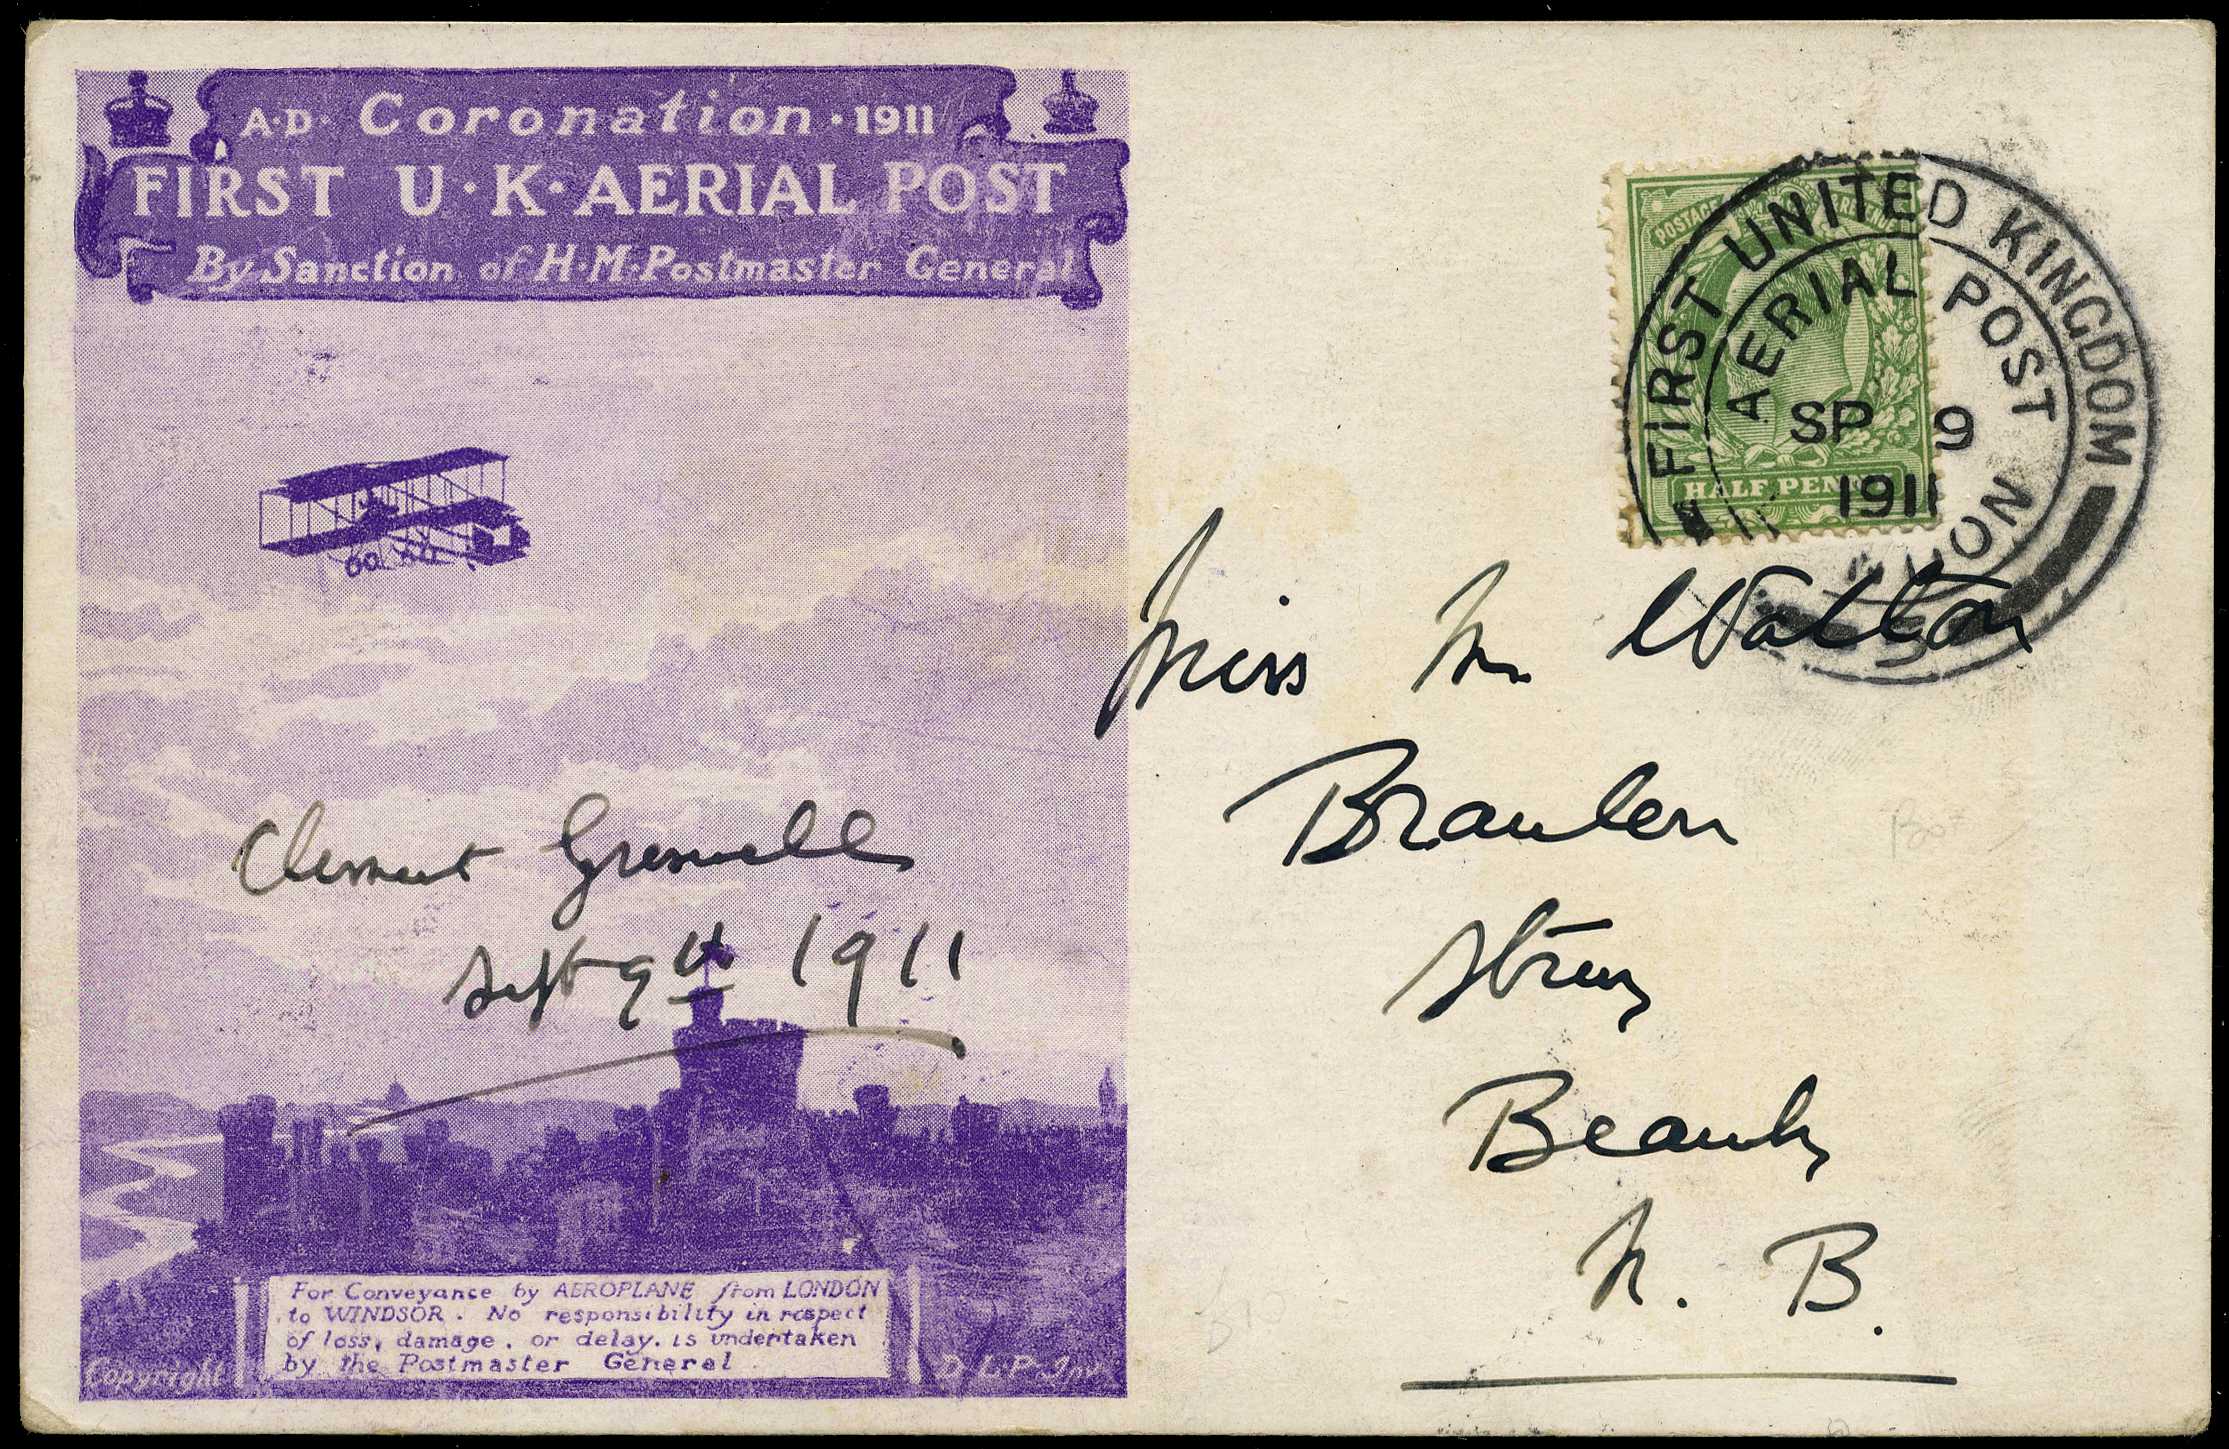 A·D· Coronation · 1911
FIRST U·K·AERIAL POST
By Sanction of H·M·Postmaster General
POSTAGE REVENUE
HALF PENNY
FIRST UNITED KINGDOM
AERIAL POST
SP 9
1911
Miss M. Watton
Clement Greswell
Sept 9th 1911
Beauly
N. B.
For Conveyance by AEROPLANE from LONDON
to WINDSOR. No responsibility in respect
of loss, damage, or delay, is undertaken
by the Postmaster General
Copyright